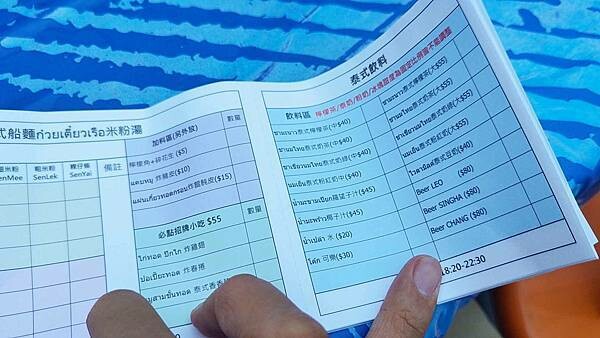 式船麵ก๋วยเตี๋ยวเรือ米粉湯
細米粉 粗米粉 粿仔條 備註
SenMee SenLek SenYai
加料區(另外放) 數量
檸檬角+碎花生 ($5)
แคบหมู 炸豬皮($10)
แผ่นเกี๊ยวทอดกรอบ炸餛飩皮($15)
必點招牌小吃 $55 數量
ไก่ทอด ปีกไก่ 炸雞翅
ปอเปี๊ยะทอด 炸春捲
หมูสามชั้นทอด 泰式香香
泰式飲料
飲料區 檸檬茶/泰奶/粉奶/冰塊甜度為固定比例皆不能調整
ชามะนาว泰式檸檬茶(中$40)
ชานมไทย泰式奶茶(中$40)
ชาเขียวนมไทย泰式奶綠(中$40)
นมเย็น泰式粉紅奶中($40)
น้ำมะขามเปียก羅望子汁($45)
น้ำมะพร้าว椰子汁($45)
น้ำเปล่า 水 ($20)
โค้ก 可樂($30)
數量
ชามะนาว泰式檸檬茶(大$55)
ชานมไทย泰式奶茶(大$55)
ชาเขียวนมไทย泰式奶綠(大$55)
นมเย็น泰式粉紅奶(大$55)
ไวตามิ้ลค์泰式豆奶($40)
Beer LEO ($80)
Beer SINGHA ($80)
Beer CHANG ($80)
18:20-22:30